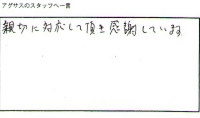 アグサスのスタッフへ一言
親切に対応して頂き感謝しています